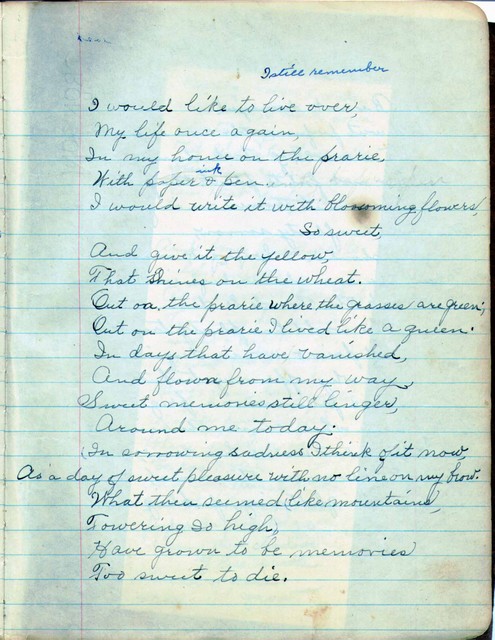 I still remember
I would like to live over,
My life once again,
In my home on the prarie,
With paper & pen
ink
I would write it with blooming flowers,
So sweet,
And give it the yellow,
That shines on the wheat.
Out on the prarie where the grasses are green,
Out on the prarie I lived like a queen.
In days that have vanished,
And flown from my way,
Sweet memories still linger,
Around me today.
In sorrowing sadness I think of it now,
As a day of sweet pleasure with no line on my brow.
What then seemed (like mountains,
Towering so high)
Have grown to be memories
Too sweet to die.